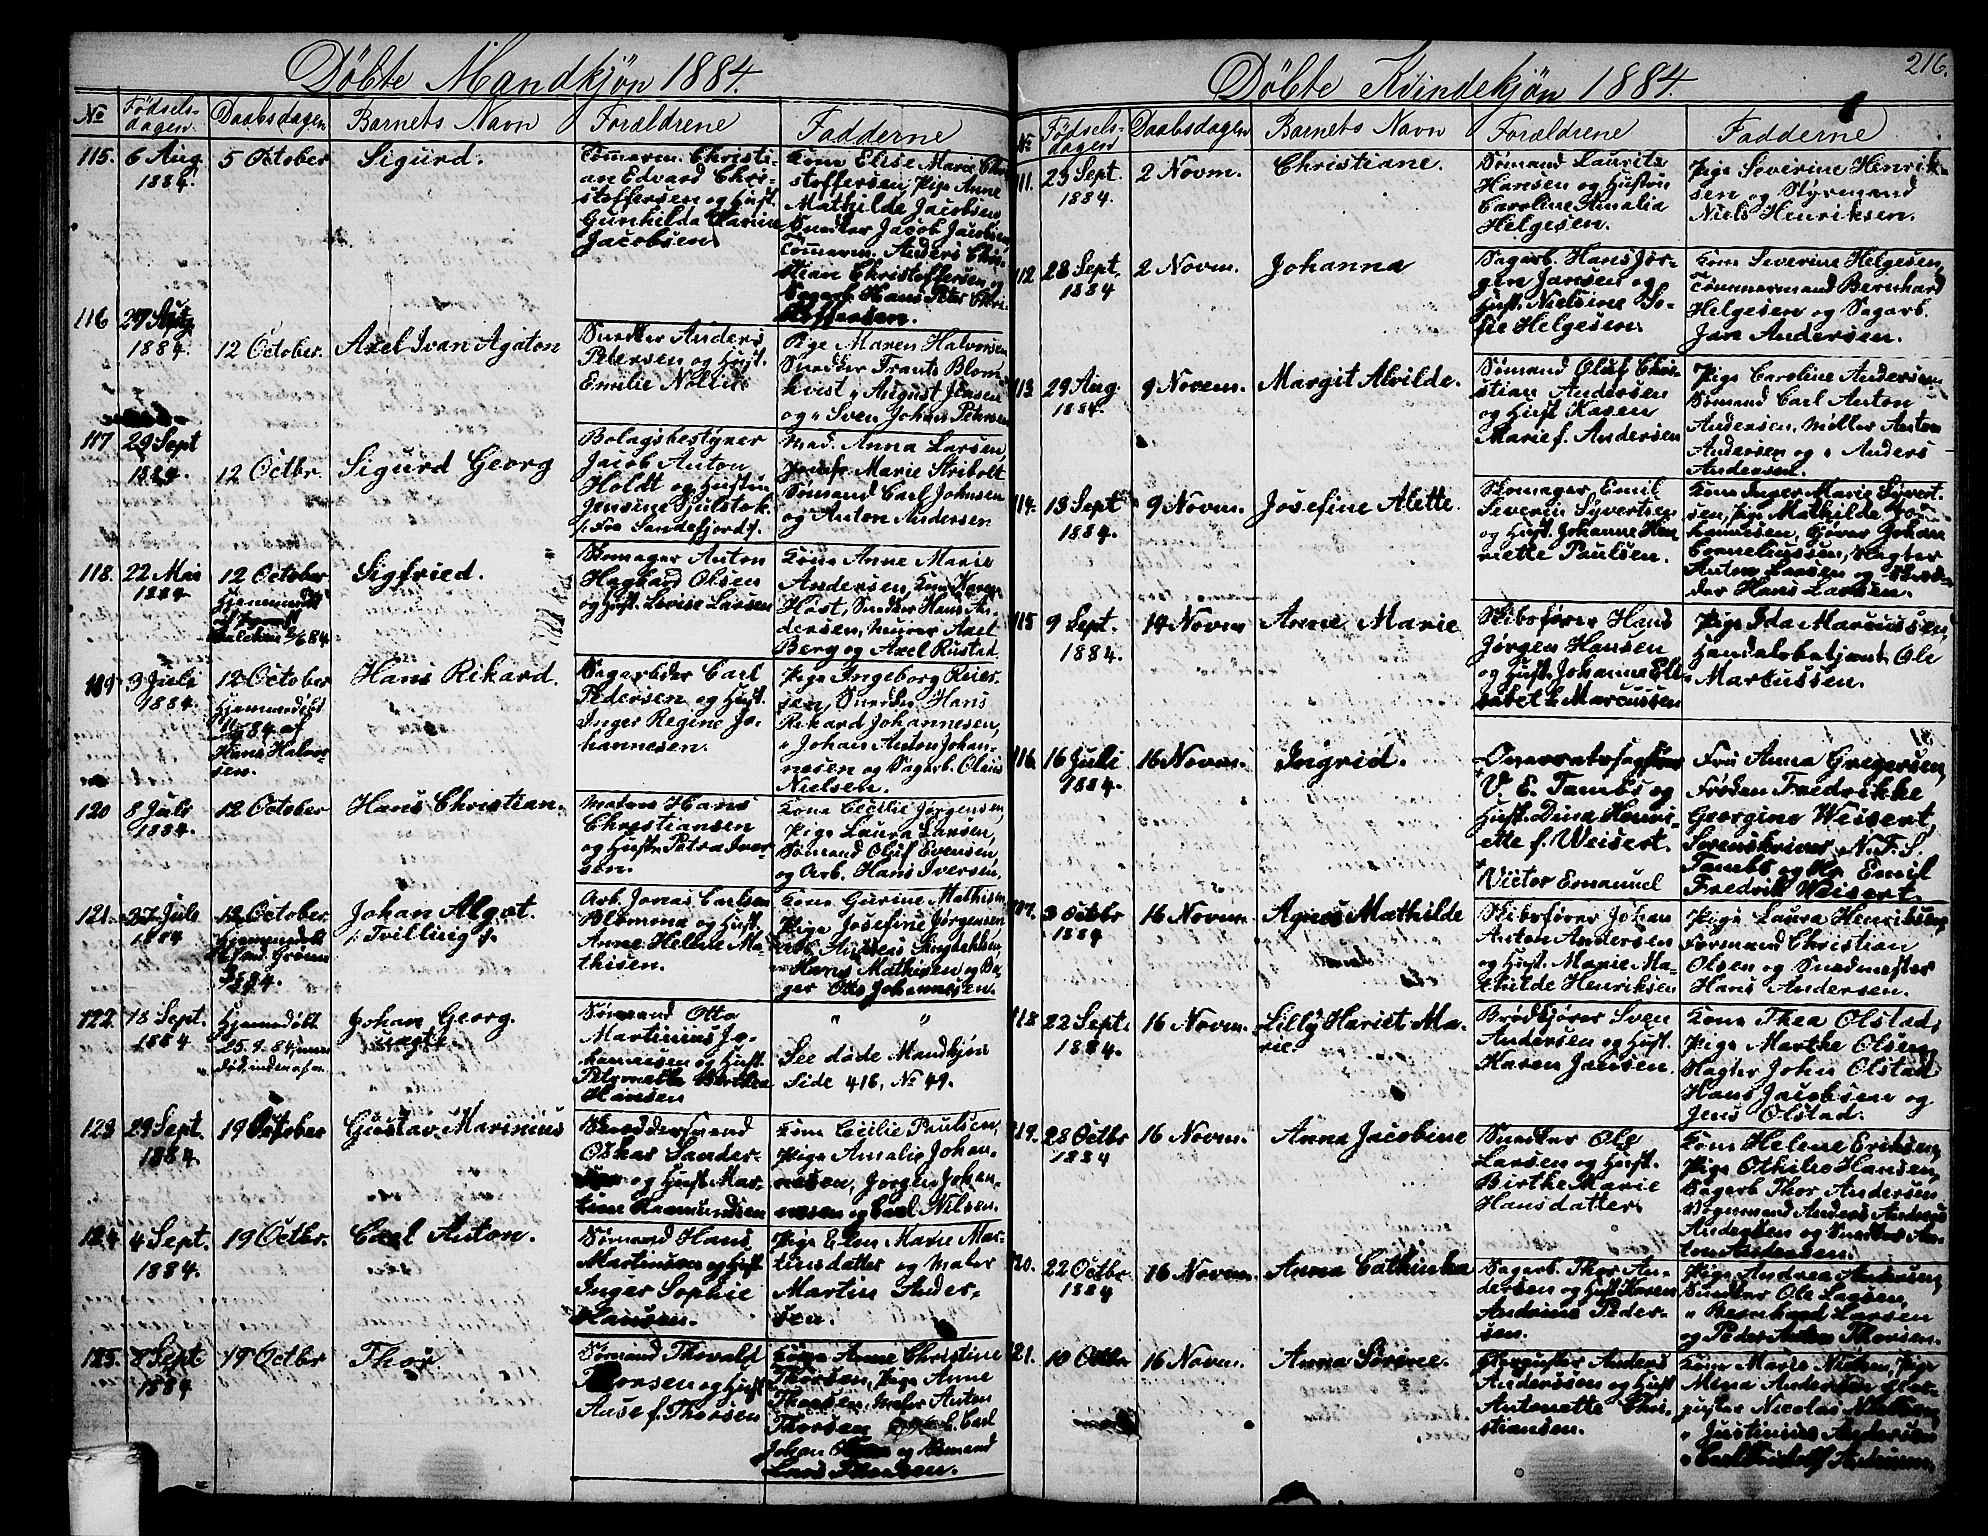 Döbte Mandkjön 1884.
№ Födsels-dagen. Daabsdagen Barnets Navn Forældrene Fadderne
115. 6 Aug. 1884. 5 October Sigurd.
Tömmerm. Christi-
an Edvard Chri-
stoffersen og Hust.
Gunhilda Marine
Jacobsen
Kone Elise Marie Chri
stoffersen, Pige Anne
Mathilde Jacobsen,
Snedker Jacob Jacobsen,
Tömmerm. Anders Chri-
stian Christoffersen og
Sagarb. Hans Peter Chri
stoffersen.
116 1884. 12 October. Axel Ivan Agaton
Snedker Anders
Petersen og Hust.
Emilie Nolin
Pige Maren Halvorsen
Snedker Frants Blom
kvist, August Jensen
og " Sven Johan Petersen
117 29 Sept 1884. 12 Octbr. Sigurd Georg
Bolagsbestyrer
Jacob Anton
Holdt og Hustru
Jensine Hjulstok
/: Fra Sandefjord :/.
Mad. Anna Larsen,
Jomfr. Marie Stribolt
Sömand Carl Johnsen
og Anton Andersen
118. 22 Mai 1884. 12 October Hjemmedöbt Sigfried.
Skomager Anton
Hagbard Olsen
og Hust. Lovise Larsen
Kone Anne Marie
Andersen, Kone Karen
Höst, Snedker Hans An-
dersen, Murer Axel
Berg og Axel Rustad
119 3 Juli 1884. 12 October Hjemmedöbt af Hans Halvor-sen. Hans Rikard.
Sagarbeder Carl
Pedersen og Hust.
Inger Regine Jo-
hannesen.
Pige Ingeborg Reier-
sen, Snedker Hans
Rikard Johannesen,
" Johan Anton Johan-
nesen og Sagarb. Olaus
Nielsen.
120 8 Juli 1884. 12 October Hans Christian.
Matros Hans
Christiansen
og Hust. Petra Iver-
sen.
Kone Cecilie Jörgensen,
Pige Laura Larsen,
Sömand Oluf Evensen,
og Arb. Hans Iversen.
121. Juli 1884 12 October Hjemmedöbt Johan Algot. /: Tvilling :/.
Arb. Jonas Carlsen
Blomma og Hust.
Anne Helene Ma-
thisen.
Kone Gurine Mathisen
Pige Josefine Jörgensen
Hans Mathisen og Ba-
ger Otto Johannesen.
122. 18 Sept. 1884 Hjemmedöbt 25. 9. 84 Johan Georg. uægte.
Sömand Otto
Martinius Jo-
hansen og Hust.
Hansen
" "
See döde Mandkjön
Side 416, № 49.
123 29 Sept. 1884. 19 October Gustav Marinius
Oskar Sander-
sen og Hust. Mar-
tine Rasmundsen
Kone Cecilie Paulsen,
Pige Amalie Johan-
nesen, Jörgen Johan-
nesen og Carl Nilsen.
124. 4 Sept. 1884. 19 Octbr. Carl Anton.
Sömand Hans
Martinsen og Hust.
Inger Sophie
Hansen.
Pige Elen Marie Mar-
tinsdatter og Maler
Martin Ander-
sen.
125. 8 Sept 1884 19 Octbr Thor.
Sömand Thorvald
Thorsen og Hust
Anne f. Thorsen
Kone Anne Christine
Thorsen, Pige Anne
Thorsen, Maler Anton
Thorsen Carl
Johan og Sömand
Lars Thorsen.
216.
Döbte Kvindekjön 1884.
№ Födsels-dagen Daabsdagen Barnets Navn Forældrene Fadderne
111. 23 Sept. 1884. 2 Novm. Christiane.
Sömand Laurits
Hansen og Hustru
Caroline Amalia
Helgesen.
Pige Severine Henrik-
sen og Styrmand
Niels Henriksen.
112 28 Sept. 1884 2 Novm. Johanna
Sagarb. Hans Jör-
gen Jansen og
Hust. Nielsine So-
fie Helgesen.
Kone Severine Helgesen,
Tömmermand Bernhard
Helgesen og Sagarb.
Jan Andersen.
113. 29 Aug 1884. 9 Novem. Margit Alvilde.
Sömand Oluf Chri-
stian Andersen
og Hust. Karen
Marie f. Andersen
Pige Caroline Andersen
Sömand Carl Anton
Andersen, Möller Anton
Andersen og " Anders
Andersen.
114. 13 Sept 1884. 9 Novm. Josefine Alette.
Skomager Emil
Severin Syvertsen
og Hust. Johanne Hen
riette Paulsen.
Kone Inger Marie Syvert-
sen, Pige Mathilde Jo-
hannesen, Görer Johan
Corneliussen, Slagter
Anton Larsen og
der Hans Larsen.
115 9 Sept. 1884. 14 Novm Anne Marie
Skibsförer Hans
Jörgen Hansen
og Hust. Johanne Eli-
sabet f. Marcussen
Pige Ida Marcussen,
Handelsbetjent Ole
Marcussen.
116. 16 Juli 1884. 16 Novm. Ingrid.
Overretssagförer
V. E. Tambs og
Hust. Dina Henri-
ette f. Weisert.
Victor Emanuel
Fru Anna Gregersen,
Fröken Fredrikke
Georgine Weisert,
Sorenskriver N. F. S.
Tambs og Hr. Emil
Fredrik Weisert.
117. 3 Octbr 1884. 16 Novm. Agnes Mathilde
Skibsförer Johan
Anton Andersen
og Hust. Marie Ma-
thilde Henriksen
Pige Laura Henriksen,
Formand Christian
Olsen og Smedmester
Hans Andersen.
118 22 Sept. 1884. 16 Novm. Lilly Hariet Ma-rie.
Brödkjörer Sven
Andersen og Hust.
Maren Jansen.
Kone Thea Olstad,
Pige Marthe Olsen,
Slagter John Olstad
Hans Jacobsen og
Jens Olstad.
119. 28 Octbr 1884 16 Novm. Anna Jacobine
Snedker Ole
Larsen og Hust.
Birthe Marie
Hansdatter
Kone Helene Eriksen,
Pige Othilie Hansen,
Sagarb. Thor Andersen
Vognmand Anders Andreas
Andersen og Snedker An-
ton Andersen.
120. 22 Octbr 1884 16 Novm. Anna Cathinka
Sagarb. Thor An-
dersen og Hust. Karen
Andrine Peder-
sen.
Pige Andrea Andersen,
Snedker Ole Larsen,
" Bernhard Larsen
og Peder Anton Thorsen.
121. 10 Octbr 16 Novm. Anna Sörine.
Anders
Anderssen og Hust
Antonette Chri-
stiansen.
Kone Marie Nielsen, Pige
Mina Andersen
Nicolai Nielsen,
" Justinius Andersen
" Carl Fridolf Andersen